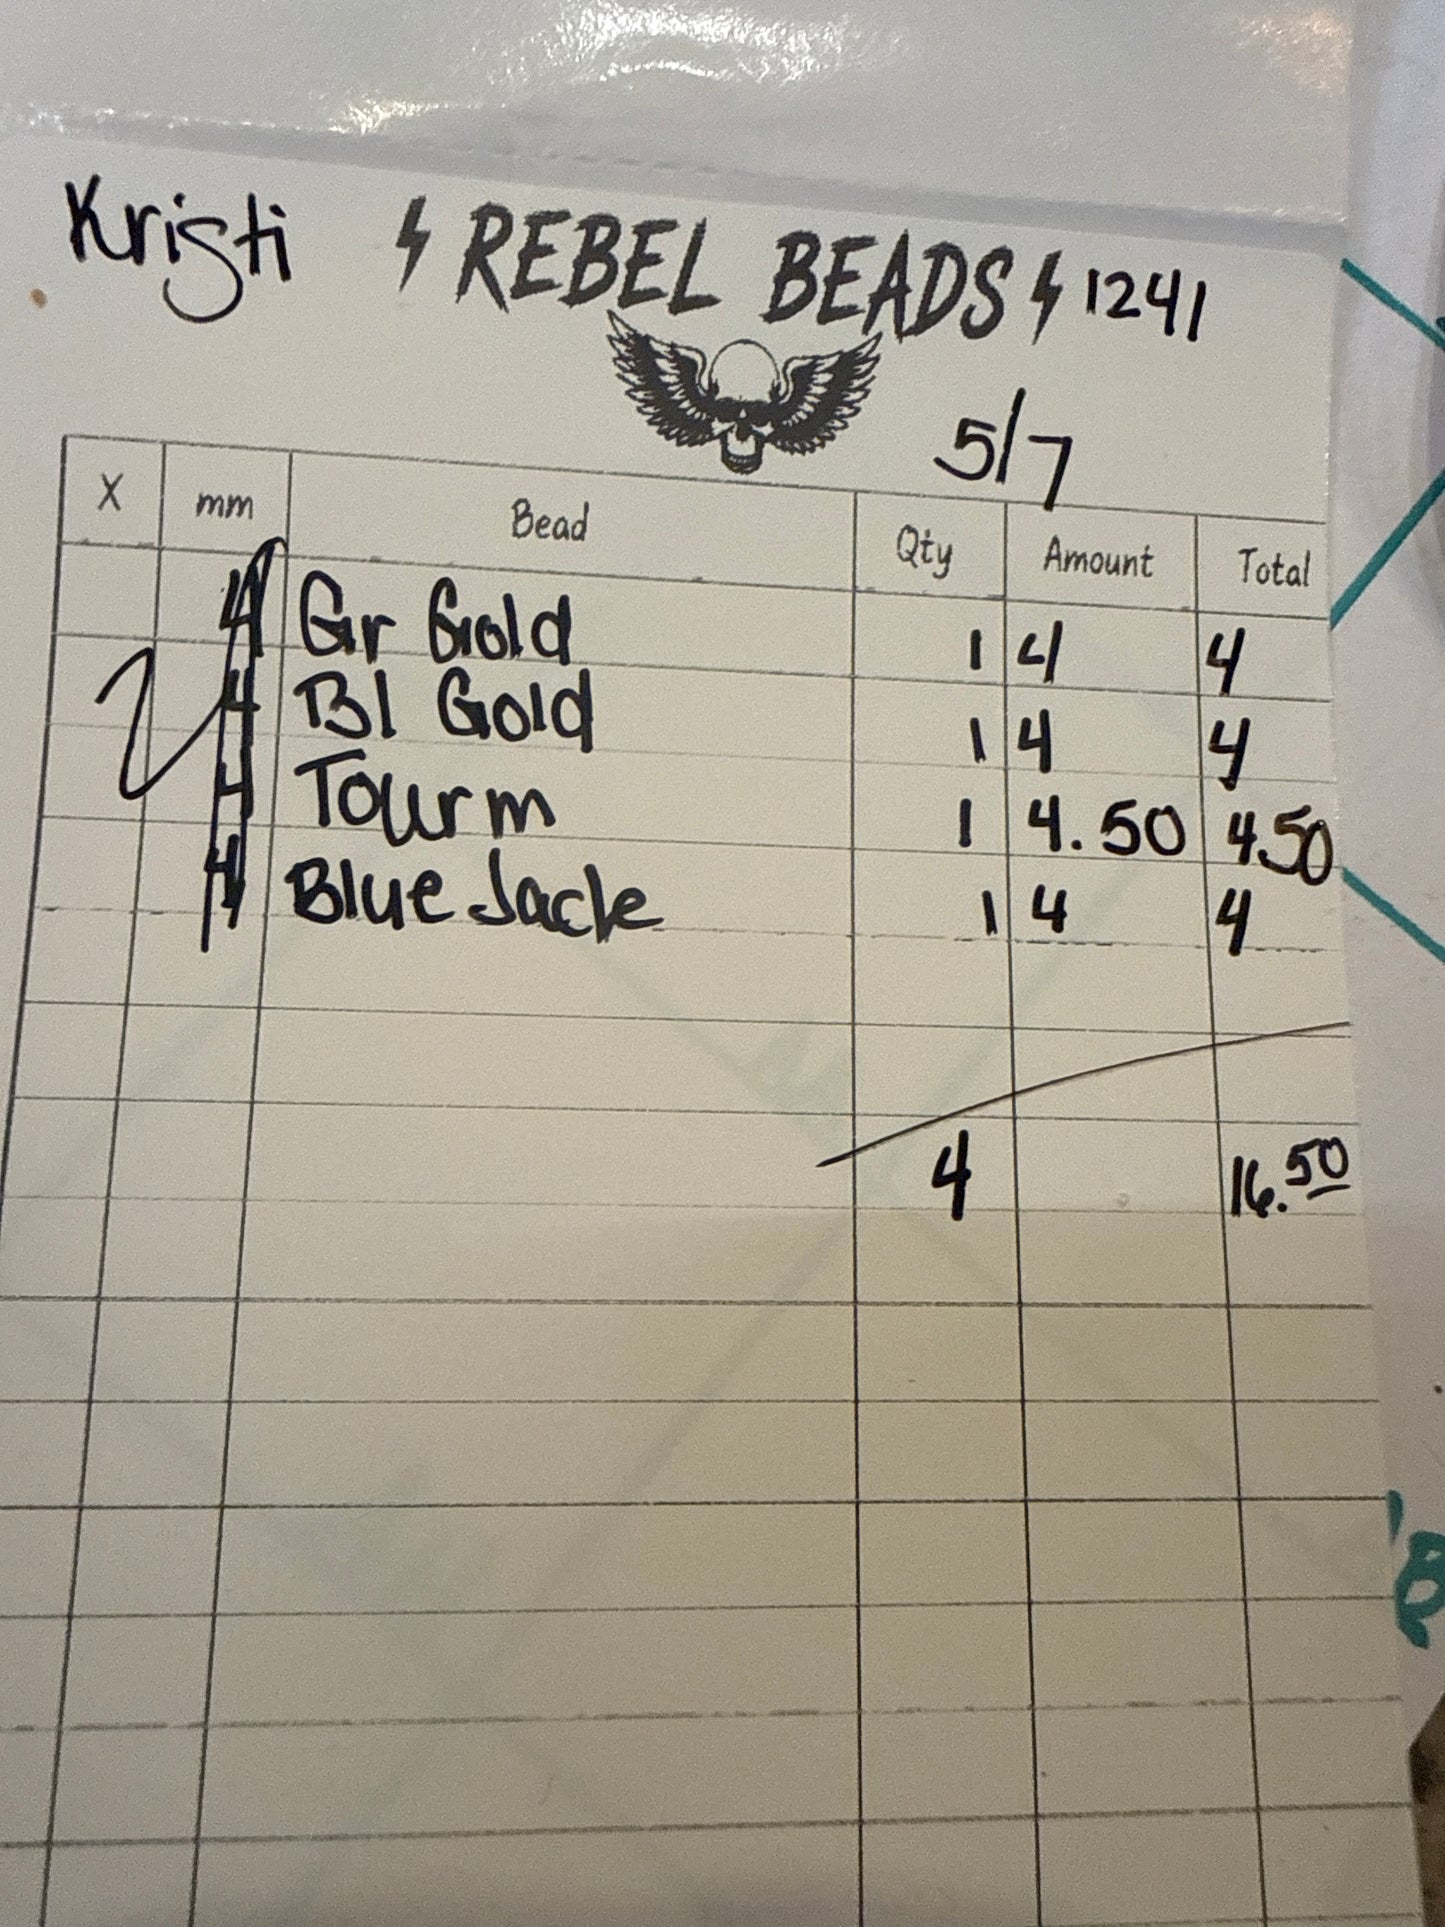 Kristi REBEL BEADS 1241
5/7
X mm Bead Qty Amount Total
4 Gr Gold 1 4 4
4 Bl Gold 1 4 4
4 Tourm 1 4.50 4.50
4 Blue Jade 1 4 4
4 16.50